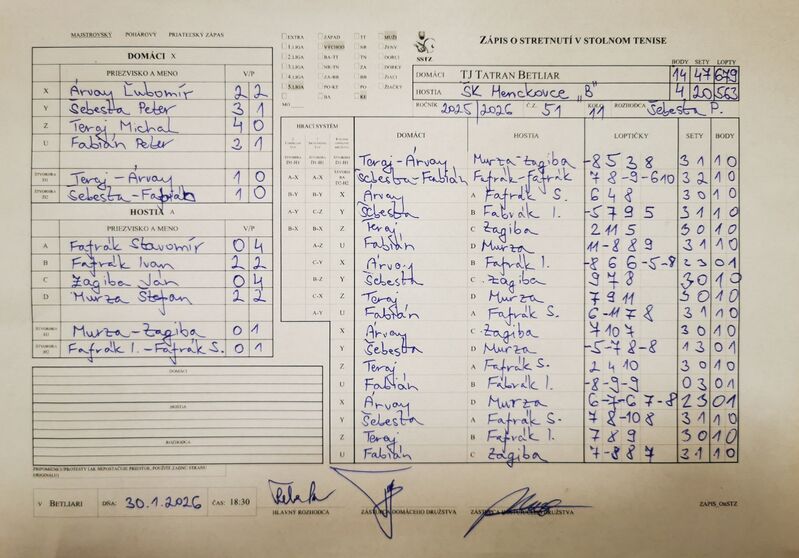 MAJSTROVSKÝ POHÁROVÝ PRIATEĽSKÝ ZÁPAS
DOMÁCI X
PRIEZVISKO A MENO V/P
X Árvay Ľubomír 2 2
Y Šebesta Peter 3 1
Z Teraj Michal 4 0
U Fabián Peter 3 1
ŠTVORHRA D1 Teraj-Árvay 1 0
ŠTVORHRA D2 Šebesta-Fabián 1 0
HOSTIA A
PRIEZVISKO A MENO V/P
A Fafrák Slavomír 0 4
B Fafrák Ivan 2 2
C Zágiba Ján 0 4
D Murza Štefan 2 2
ŠTVORHRA H1 Murza-Zagiba 0 1
ŠTVORHRA H2 Fafrák I.-Fafrák S. 0 1
DOMÁCI
HOSTIA
ROZHODCA
PRIPOMIENKY/PROTESTY (AK NEPOSTAČUJE PRIESTOR, POUŽITE ZADNÚ STRANU ORIGINÁLU)
EXTRA ZÁPAD TT MUŽI
1.LIGA VÝCHOD NR ŽENY
2.LIGA BA-TT TN DORCI
3.LIGA NR-TN ZA DORKY
4.LIGA ZA-BB BB ŽIACI
5.LIGA PO-KE PO ŽIAČKY
MO BA KE
SSTZ
ZÁPIS O STRETNUTÍ V STOLNOM TENISE
BODY SETY LOPTY
DOMÁCI TJ TATRAN BETLIAR 14 47 679
HOSTIA ŠK Henckovce „B" 4 20 563
ROČNÍK 2025/2026 Č.Z. 51 KOLO 11 ROZHODCA Šebesta P.
HRACÍ SYSTÉM DOMÁCI HOSTIA LOPTIČKY SETY BODY
Teraj-Árvay Murza-Zagiba -8 5 3 8 3 1 1 0
Šebesta-Fabián Fafrák-Fafrák 7 8 -9 -6 10 3 2 1 0
X Árvay A Fafrák S. 6 4 8 3 0 1 0
Y Šebesta B Fabrák I. -5 7 9 5 3 1 1 0
Z Teraj C Zagiba 2 11 5 3 0 1 0
U Fabián D Murza 11 -8 8 9 3 1 1 0
X Árvay B Fafrák I. -8 6 6 -5 -8 2 3 0 1
Y Šebesta C Zágiba 9 7 8 3 0 1 0
Z Teraj D Murza 7 9 11 3 0 1 0
U Fabián A Fafrák S. 6 -11 7 8 3 1 1 0
X Árvay C Zagiba 7 10 7 3 0 1 0
Y Šebesta D Murza -5 -7 8 -8 1 3 0 1
Z Teraj A Fafrák S. 2 4 10 3 0 1 0
U Fabián B Fábrák I. -8 -9 -9 0 3 0 1
X Árvay D Murza 6 -7 -6 7 -8 2 3 0 1
Y Šebesta A Fafrák S. 7 8 -10 8 3 1 1 0
Z Teraj B Fafrák I. 7 8 9 3 0 1 0
U Fabián C Zágiba 7 -8 8 7 3 1 1 0
V BETLIARI DŇA: 30.1.2026 ČAS: 18:30
HLAVNÝ ROZHODCA ZÁSTUPCA DOMÁCEHO DRUŽSTVA
ZAPIS_OSSTZ